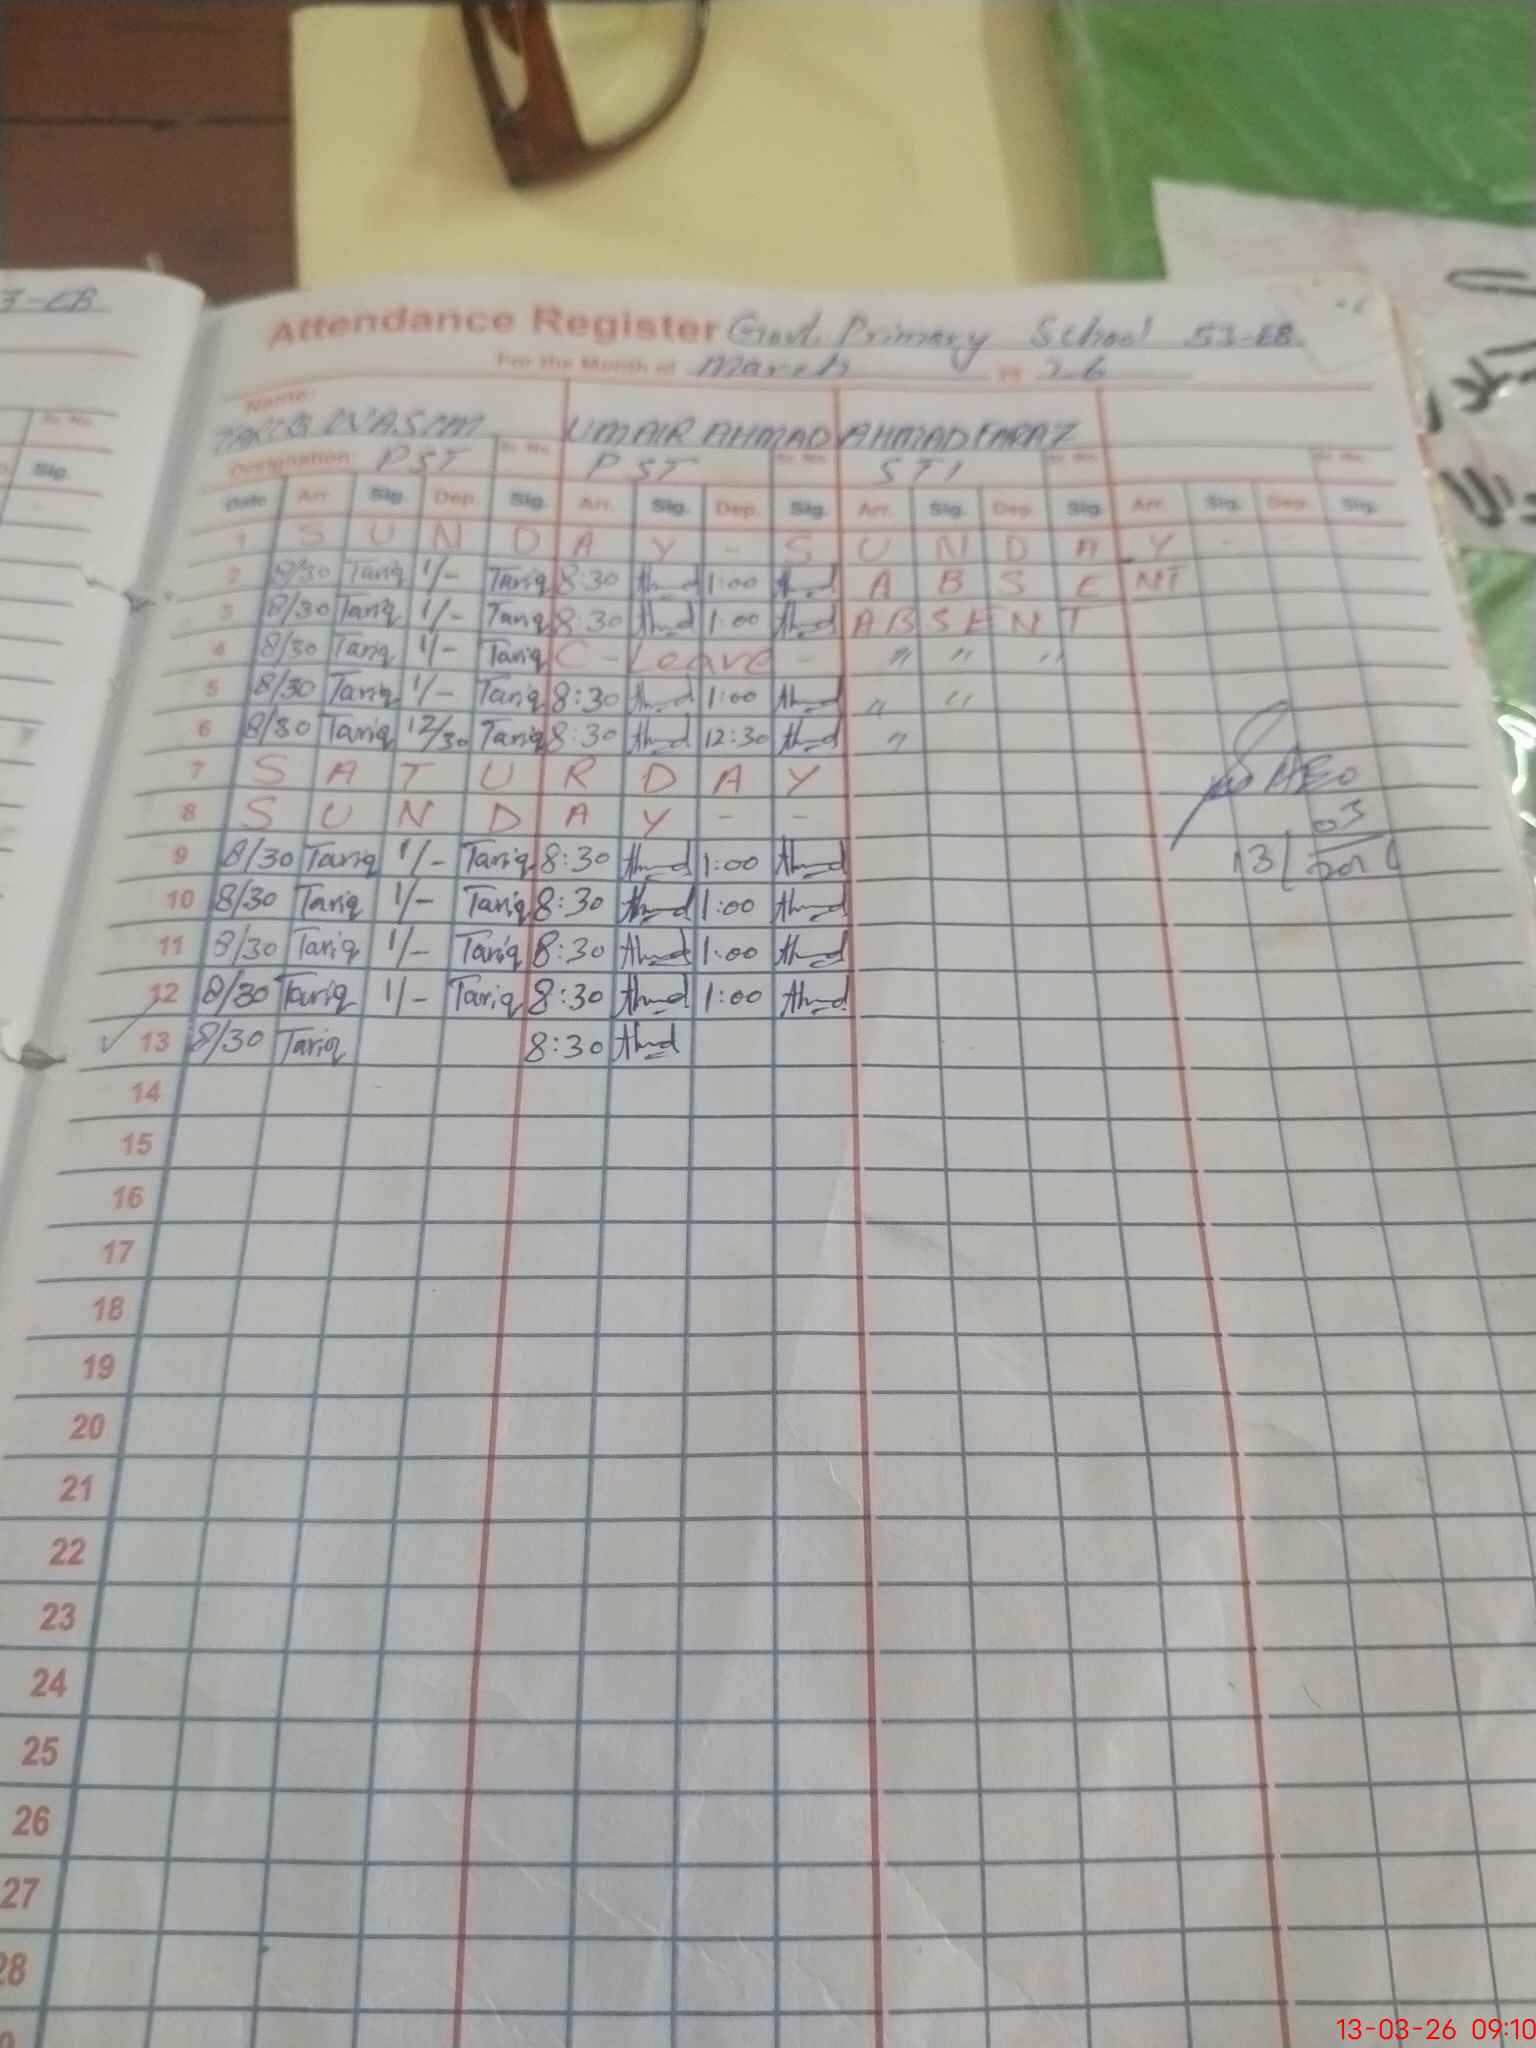 3-EB
Attendance Register Govt. Primary School 53-EB
For the Month of March 19 26
Name:
TARIQ WASIM UMAIR AHMAD AHMAD FARAZ
Sr. No. Sr. No. Sr. No. Sr. No. Sr. No.
Designation: PST PST STI
Sig. Date Arr. Sig. Dep. Sig. Arr. Sig. Dep. Sig. Arr. Sig. Dep. Sig. Arr. Sig. Dep. Sig.
1 S U N D A Y - S U N D A Y - - -
2 8/30 Tariq 1/- Tariq 8:30 Ahmad 1:00 Ahmad A B S E NT
3 8/30 Tariq 1/- Tariq 8:30 Ahmad 1:00 Ahmad ABSENT
4 8/30 Tariq 1/- Tariq C-Leave - " " "
5 8/30 Tariq 1/- Tariq 8:30 Ahmad 1:00 Ahmad " "
6 8/30 Tariq 12/30 Tariq 8:30 Ahmad 12:30 Ahmad "
7 S A T U R D A Y
8 S U N D A Y - -
AEO
03
9 8/30 Tariq 1/- Tariq 8:30 Ahmad 1:00 Ahmad
13
10 8/30 Tariq 1/- Tariq 8:30 Ahmad 1:00 Ahmad
11 8/30 Tariq 1/- Tariq 8:30 Ahmad 1:00 Ahmad
12 8/30 Tariq 1/- Tariq 8:30 Ahmad 1:00 Ahmad
13 8/30 Tariq 8:30 Ahmad
14
15
16
17
18
19
20
21
22
23
24
25
26
27
28
13-03-26 09:10